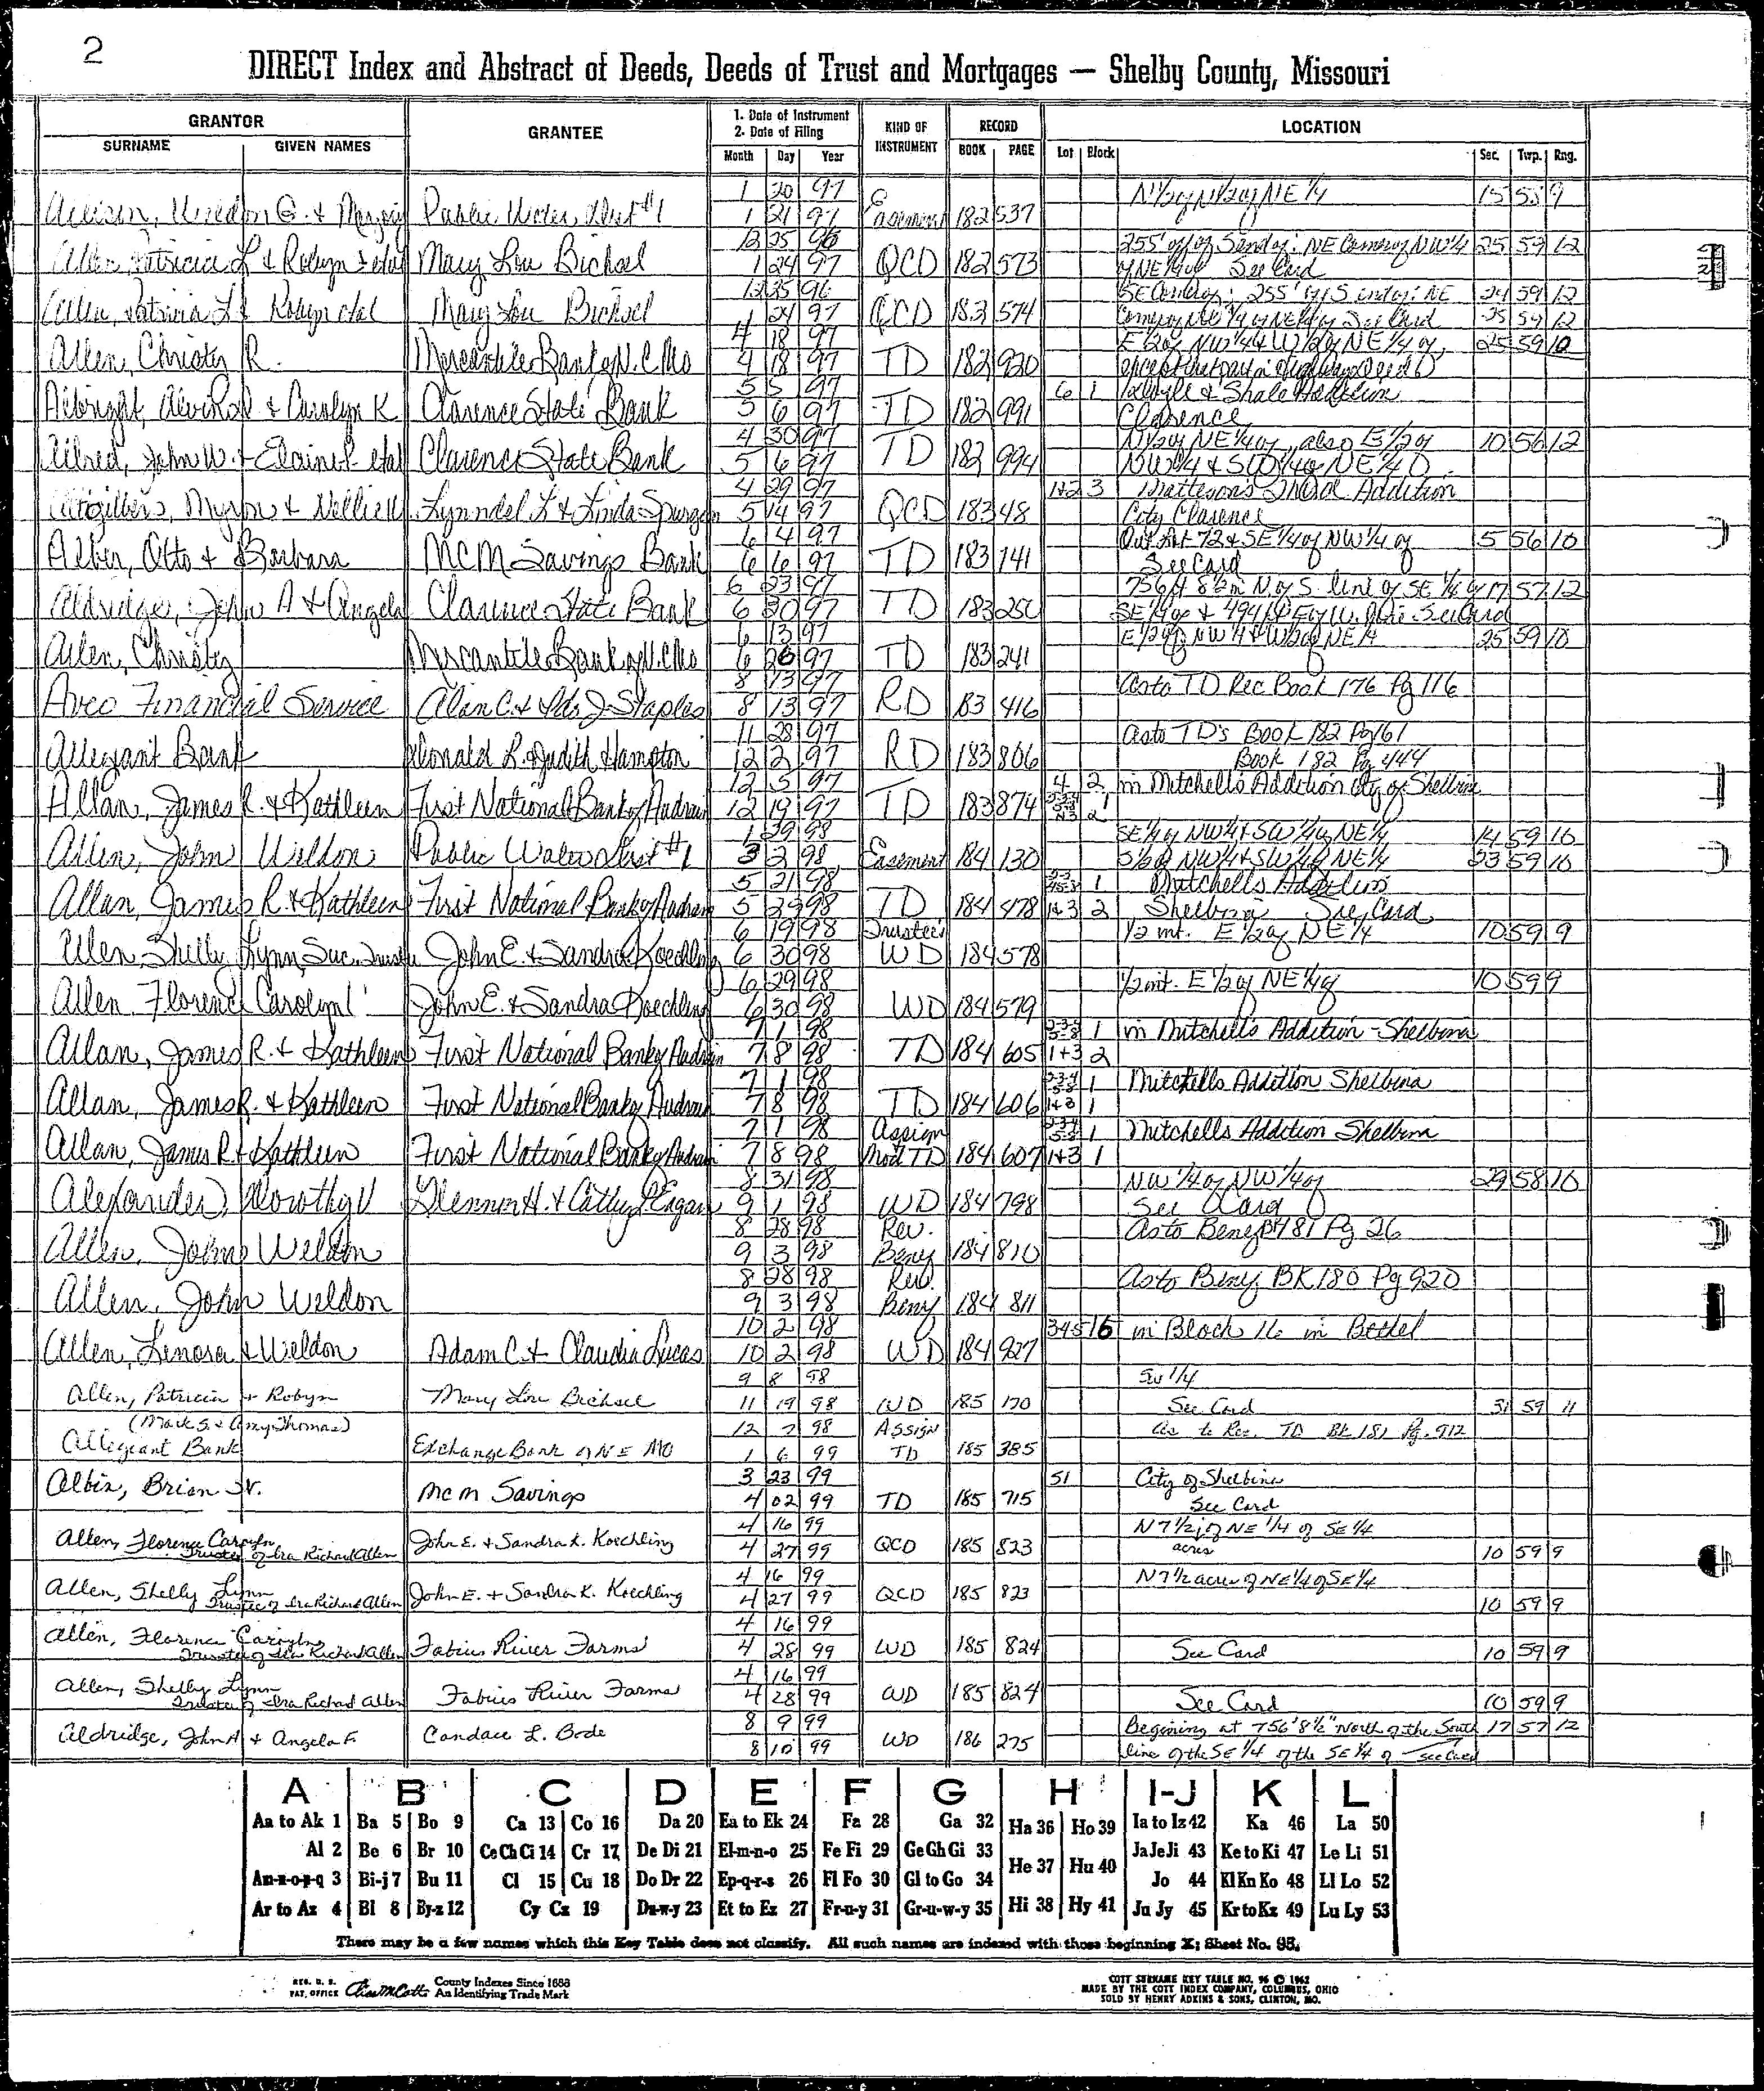 2
DIRECT Index and Abstract of Deeds, Deeds of Trust and Mortgages — Shelby County, Missouri
GRANTOR GRANTEE 1. Date of Instrument 2. Date of Filing KIND OF INSTRUMENT RECORD LOCATION
SURNAME GIVEN NAMES Month Day Year BOOK PAGE Lot Block Sec. Twp. Rng.
1 20 97 N1/2 of N1/2 of NE 1/4 15 58 9
Weldon G. & Public Water Dist #1 1 21 97 Easement 182 537
12 25 96 255' off of S end of: NE Corner of NW 1/4 25 59 12
Allen, Patricia L & Robyn etal Mary Lou Bichsel 1 24 97 QCD 182 573 of NE 1/4 of See Card
12 25 96 255' of S end of: NE 24 59 12
Allen, Patricia L & Robyn etal Mary Lou Bichsel 1 24 97 QCD 183 574 Corner of NE 1/4 of NE 1/4 of See Card 25 59 12
4 18 97 E 1/2 of NW 1/4 & W 1/2 of NE 1/4 of 25 59 10
Allen, Christy R. Mercantile Bank of N.C. Mo 4 18 97 TD 182 920 except that part in Highway Deed
5 5 97 6 1 & Shale Addition
Albright, Alvin & Carolyn K Clarence State Bank 5 6 97 TD 182 991 Clarence
4 30 97 N 1/2 of NE 1/4 of, also E 1/2 of 10 56 12
Allred, John W. & Elaine P. etal Clarence State Bank 5 6 97 TD 182 994 NW 1/4 & SW 1/4 of NE 1/4
4 29 97 1+2 3 Addition
Myron & Nellie Lynndel L & Linda Spurgeon 5 14 97 QCD 183 48 City Clarence
6 4 97 Out Lot 72 & SE 1/4 of NW 1/4 of 5 56 10
Alber, Otto & Barbara MCM Savings Bank 6 6 97 TD 183 141 See Card
6 23 97 756 ft 8 1/2 in N. of S. line of SE 1/4 of 17 57 12
Aldridge, John A & Angela Clarence State Bank 6 30 97 TD 183 250 SE 1/4 of & 494 ft E of W. line See Card
6 13 97 E 1/2 of NW 1/4 & W 1/2 of NE 1/4 25 59 10
Allen, Christy Mercantile Bank of N.C. Mo 6 26 97 TD 183 241
8 13 97 As to TD Rec Book 176 Pg 116
Avco Financial Service Alan C. & Ida J. Staples 8 13 97 RD 183 416
11 28 97 As to TD's Book 182 Pg 161
Allegiant Bank Donald R. & Judith Hampton 12 2 97 RD 183 806 Book 182 Pg 444
12 5 97 4 2 in Mitchell's Addition City of Shelbina
Allan, James R. & Kathleen First National Bank of Audrain 12 19 97 TD 183 874
1 29 98 SE 1/4 of NW 1/4 & SW 1/4 of NE 1/4 14 59 10
Allen, John Weldon Public Water Dist #1 3 2 98 Easement 184 130 S 1/2 of NW 1/4 & SW 1/4 of NE 1/4 23 59 10
5 21 98 1 Mitchells Addition
Allan, James R. & Kathleen First National Bank of Audrain 5 29 98 TD 184 478 1+3 2 Shelbina See Card
6 19 98 Trustee's 1/2 int. E 1/2 of NE 1/4 10 59 9
Allen, Shelly Lynn Suc. Trustee John E. & Sandra Koechling 6 30 98 WD 184 578
6 29 98 1/2 int. E 1/2 of NE 1/4 of 10 59 9
Allen Florence Carolyn John E. & Sandra Koechling 6 30 98 WD 184 579
7 1 98 1 in Mitchell's Addition - Shelbina
Allan, James R. & Kathleen First National Bank of Audrain 7 8 98 TD 184 605 1+3 2
7 1 98 1 Mitchells Addition Shelbina
Allan, James R. & Kathleen First National Bank of Audrain 7 8 98 TD 184 606 1+3 1
7 1 98 Assign 1 Mitchells Addition Shelbina
Allan, James R & Kathleen First National Bank of Audrain 7 8 98 Mod TD 184 607 1+3 1
8 31 98 NW 1/4 of NW 1/4 of 29 58 10
Alexander, Dorothy V Glennon H. & Cathy P. Eagan 9 1 98 WD 184 798 See Card
8 28 98 Rev. As to Beny Bk 181 Pg 26
Allen, John Weldon 9 3 98 Beny 184 810
8 28 98 Rev. As to Beny BK 180 Pg 920
Allen, John Weldon 9 3 98 Beny 184 811
10 2 98 345 16 in Block 16 in Bethel
Allen, Lenora & Weldon Adam C. & Claudia Lucas 10 2 98 WD 184 927
9 8 98 SW 1/4
Allen, Patricia & Robyn Mary Lou Bichsel 11 19 98 WD 185 170 See Card 31 59 11
(Mark S. & Amy Thomas) 12 7 98 ASSIGN As to Rec. TD Bk 181 Pg. 912
Allegeant Bank Exchange Bank of NE MO 1 6 99 TD 185 385
3 23 99 51 City of Shelbina
Albin, Brian Sr. MCM Savings 4 02 99 TD 185 715 See Card
4 16 99 N 7 1/2 of NE 1/4 of SE 1/4
Allen, Florence Carolyn John E. & Sandra K. Koechling 4 27 99 QCD 185 823 acres 10 59 9
Trustee of Ira Richard Allen
4 16 99 N 7 1/2 acres of NE 1/4 of SE 1/4
Allen, Shelly Lynn John E. & Sandra K. Koechling 4 27 99 QCD 185 823 10 59 9
Trustee of Ira Richard Allen
4 16 99
Allen, Florence Carolyn Fabius River Farms 4 28 99 WD 185 824 See Card 10 59 9
Trustee of Ira Richard Allen
4 16 99
Allen, Shelly Lynn Fabius River Farms 4 28 99 WD 185 824 See Card 10 59 9
Trustee of Ira Richard Allen
8 9 99 Beginning at 756' 8 1/2" North of the South 17 57 12
Aldridge, John A & Angela F. Candace L. Bode 8 10 99 WD 186 275 line of the SE 1/4 of the SE 1/4 of see Card
A B C D E F G H I-J K L
Aa to Ak 1 Ba 5 Bo 9 Ca 13 Co 16 Da 20 Ea to Ek 24 Fa 28 Ga 32 Ha 36 Ho 39 Ia to Iz 42 Ka 46 La 50
Al 2 Be 6 Br 10 Ce Ch Ci 14 Cr 17 De Di 21 El-m-n-o 25 Fe Fi 29 Ge Gh Gi 33 He 37 Hu 40 Ja Je Ji 43 Ke to Ki 47 Le Li 51
Am-n-o-p-q 3 Bi-j 7 Bu 11 Cl 15 Cu 18 Do Dr 22 Ep-q-r-s 26 Fl Fo 30 Gl to Go 34 Jo 44 Kl Kn Ko 48 Ll Lo 52
Ar to Az 4 Bl 8 By-z 12 Cy Cz 19 Du-w-y 23 Et to Ez 27 Fr-u-y 31 Gr-u-w-y 35 Hi 38 Hy 41 Ju Jy 45 Kr to Kz 49 Lu Ly 53
There may be a few names which this Key Table does not classify. All such names are indexed with those beginning X; Sheet No. 95.
REG. U. S. PAT. OFFICE County Indexes Since 1888
An Identifying Trade Mark
COTT SURNAME KEY TABLE NO. 96 © 1962
MADE BY THE COTT INDEX COMPANY, COLUMBUS, OHIO
SOLD BY HENRY ADKINS & SONS, CLINTON, MO.